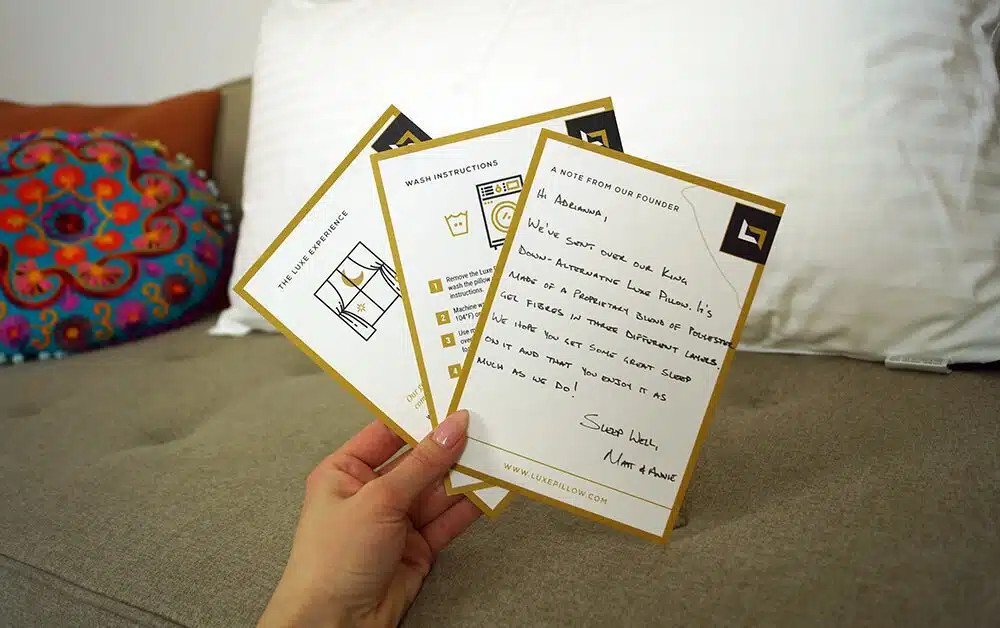 THE LUXE EXPERIENCE
Our
WASH INSTRUCTIONS
1 Remove the Luxe
wash the pillow
instructions.
2 Machine w
104°F) or
3 Use
over
4
A NOTE FROM OUR FOUNDER
Hi Adrianna,
We've sent over our King
Down-Alternative Luxe Pillow. It's
made of a proprietary blend of polyester
gel fibres in three different layers.
We hope you get some great sleep
on it and that you enjoy it as
much as we do!
Sleep Well,
Matt & Annie
WWW.LUXEPILLOW.COM